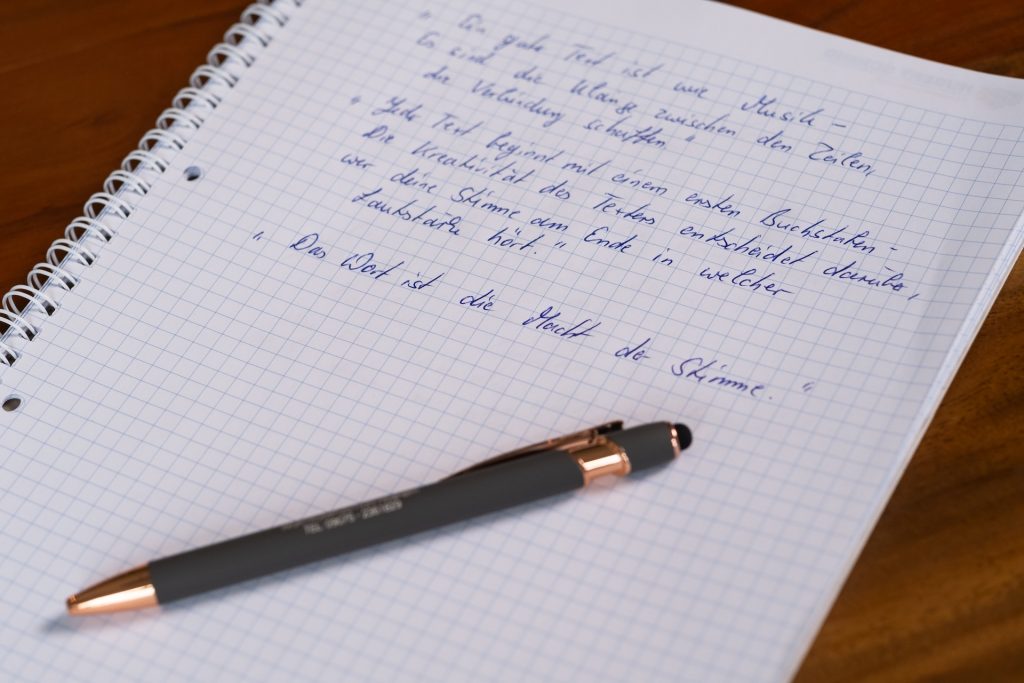 „ Ein guter Text ist wie Musik –
Es sind die Klänge zwischen den Zeilen,
die Verbindung schaffen."
„ Jeder Text beginnt mit einem ersten Buchstaben –
Die Kreativität des Texters entscheidet darüber,
wer deine Stimme am Ende in welcher
Lautstärke hört."
„ Das Wort ist die Macht der Stimme. "
TEL